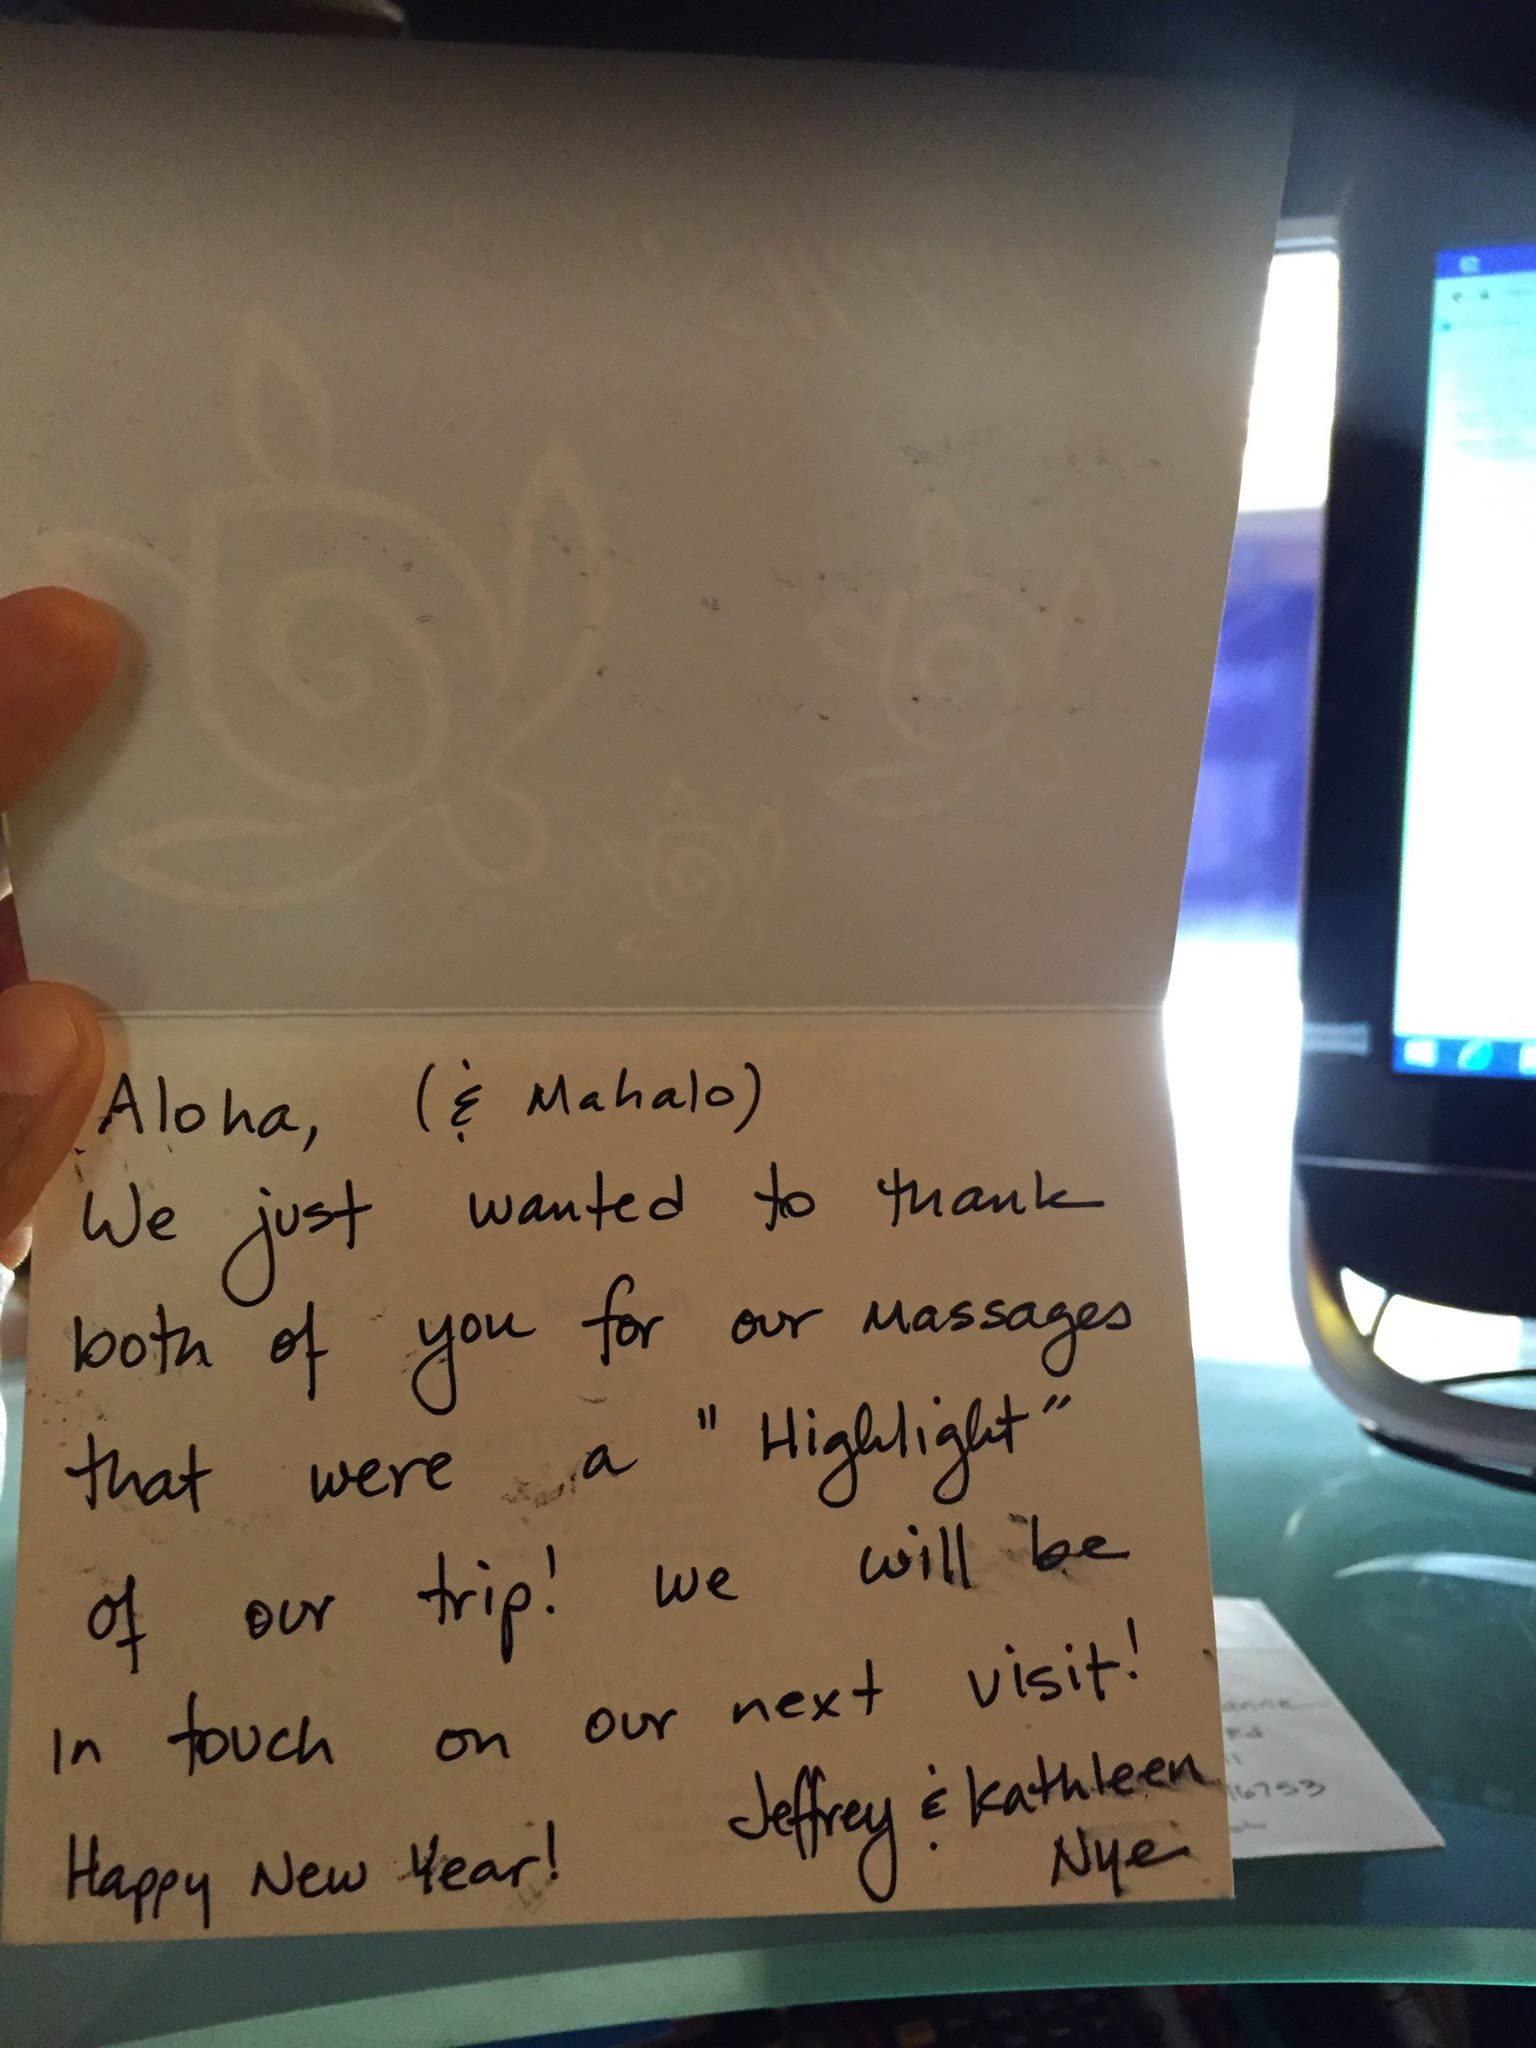 Aloha, (& Mahalo)
We just wanted to thank
both of you for our massages
that were a "Highlight"
of our trip! We will be
in touch on our next visit!
Happy New Year! Jeffrey & Kathleen
Nye
96753